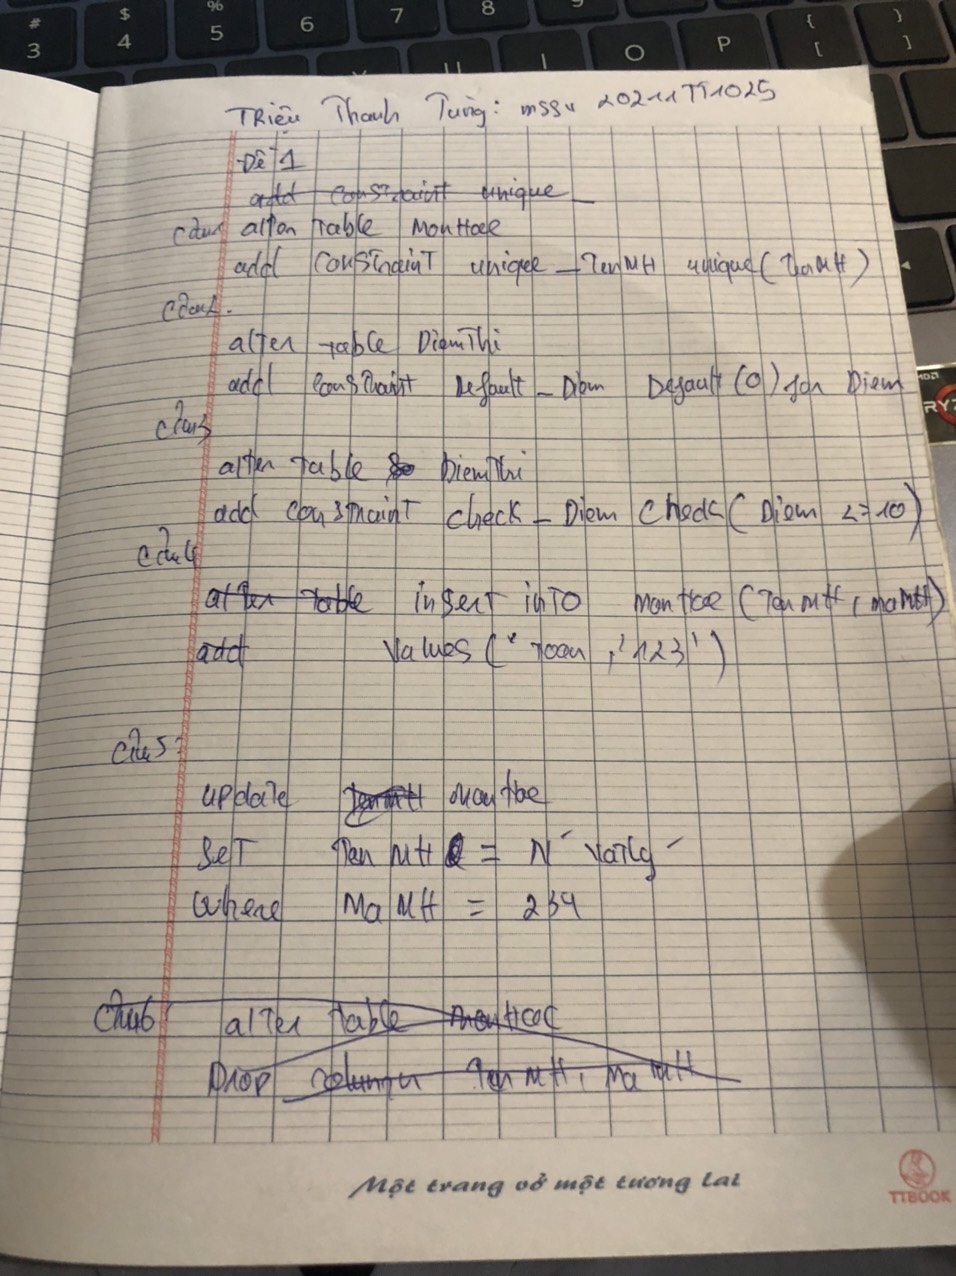 # 3 $ 4 % 5 6 7 8 9 { [ } ]
U I O P
Triệu Thanh Tùng: mssv 20211TT1025
Đề 1
add constraint unique_
câu1 alter table MonHoc
add constraint unique_TenMH unique(TenMH)
câu2.
alter table DiemThi
add constraint Default_Diem Default(0) for Diem
câu3
alter table DiemThi
add constraint check_Diem check(Diem <=10)
câu4
alter table insert into monHoc(TenMH, maMH)
add values('Toan, '123')
câu5:
update TenMH MonHoc
Set TenMH = N'Vatly'
Where MaMH = 234
câu6 alter table monHoc
Drop column TenMH, MaMH
Một trang vở một tương lai
TTBOOK
AMD
RYZ